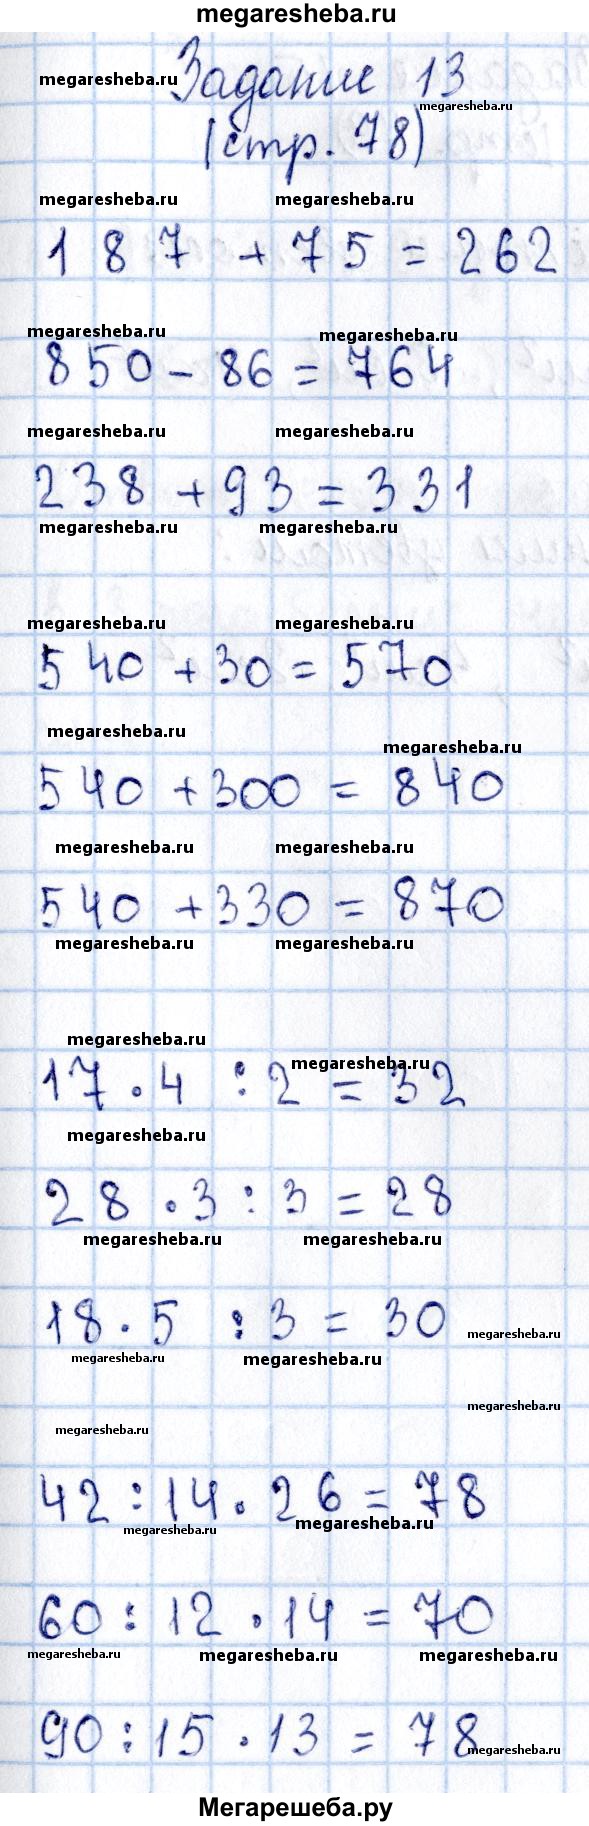 megaresheba.ru
Задание 13
megaresheba.ru
megaresheba.ru
(стр. 78)
megaresheba.ru megaresheba.ru
187 + 75 = 262
megaresheba.ru megaresheba.ru
850 - 86 = 764
megaresheba.ru megaresheba.ru
238 + 93 = 331
megaresheba.ru megaresheba.ru
megaresheba.ru megaresheba.ru
540 + 30 = 570
megaresheba.ru
megaresheba.ru
540 + 300 = 840
megaresheba.ru megaresheba.ru
540 + 330 = 870
megaresheba.ru megaresheba.ru
megaresheba.ru
megaresheba.ru
17 · 4 : 2 = 32
megaresheba.ru
28 · 3 : 3 = 28
megaresheba.ru megaresheba.ru
18 · 5 : 3 = 30
megaresheba.ru
megaresheba.ru megaresheba.ru
megaresheba.ru
megaresheba.ru
42 : 14 · 26 = 78
megaresheba.ru megaresheba.ru
60 : 12 · 14 = 70
megaresheba.ru megaresheba.ru megaresheba.ru
90 : 15 · 13 = 78
megaresheba.ru
Мегарешеба.ру